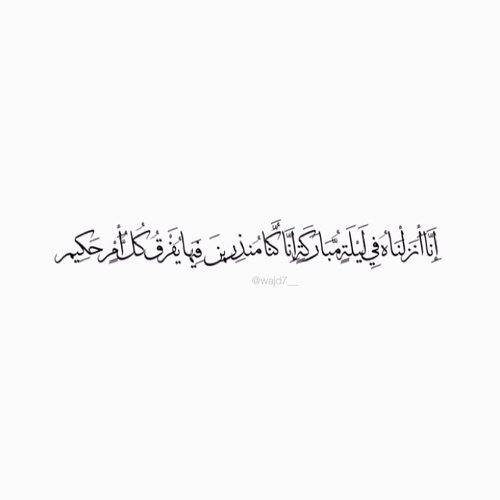 إِنَّا أَنزَلْنَاهُ فِي لَيْلَةٍ مُّبَارَكَةٍ إِنَّا كُنَّا مُنذِرِينَ فِيهَا يُفْرَقُ كُلُّ أَمْرٍ حَكِيمٍ
@wajd7__